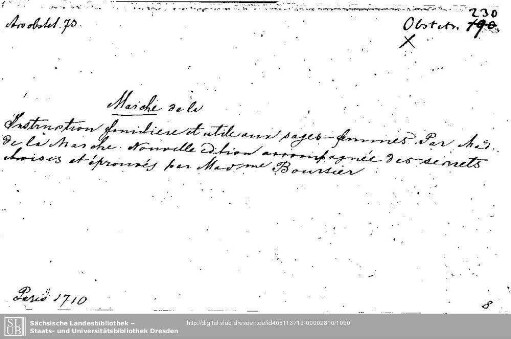 Ars obstet. 73.
Obstetr. 190 230
X
Marche de la
Instruction familiere et utile aux sages-femmes. Par Mad.
de la Marche. Nouvelle édition accompagnée des secrets
choisis et éprouvés par Madame Boursier
Paris 1710
8
SLUB
Sächsische Landesbibliothek –
Staats- und Universitätsbibliothek Dresden